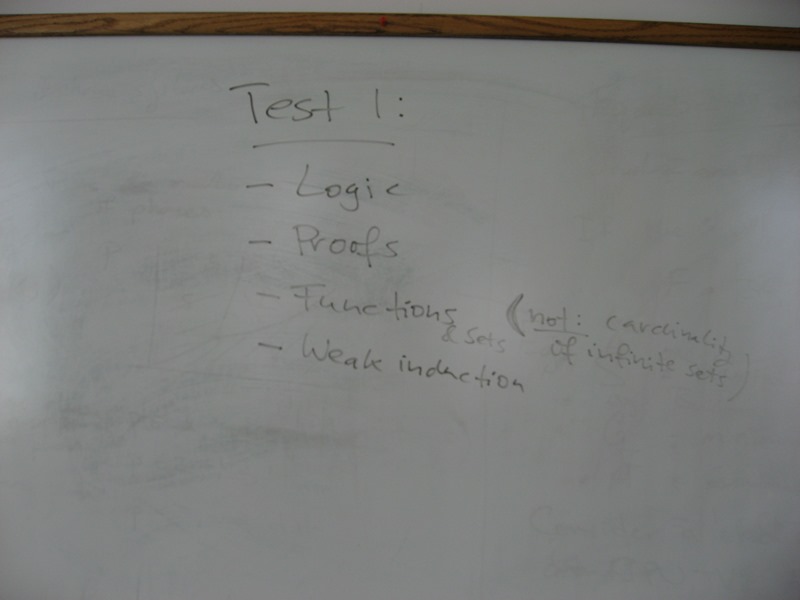 Test 1:
- Logic
- Proofs
- Functions (not: cardinality
& sets of infinite sets)
- Weak induction